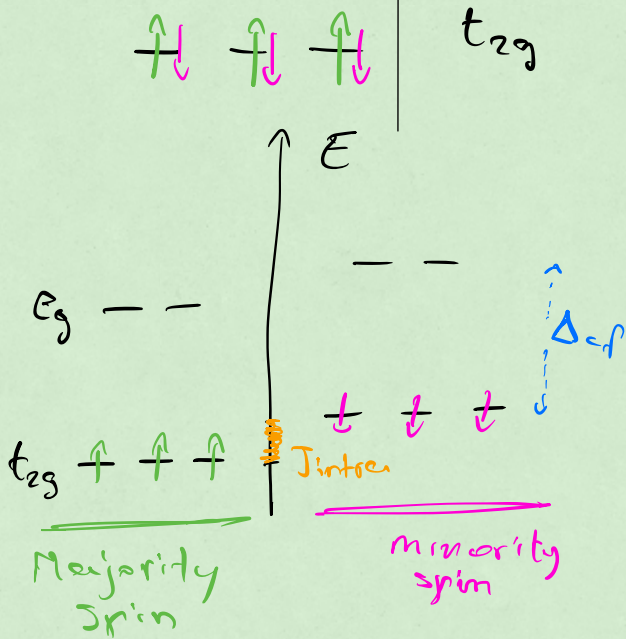 t2g
E
eg
Δcf
t2g
Jintra
Majority
spin
minority
spin